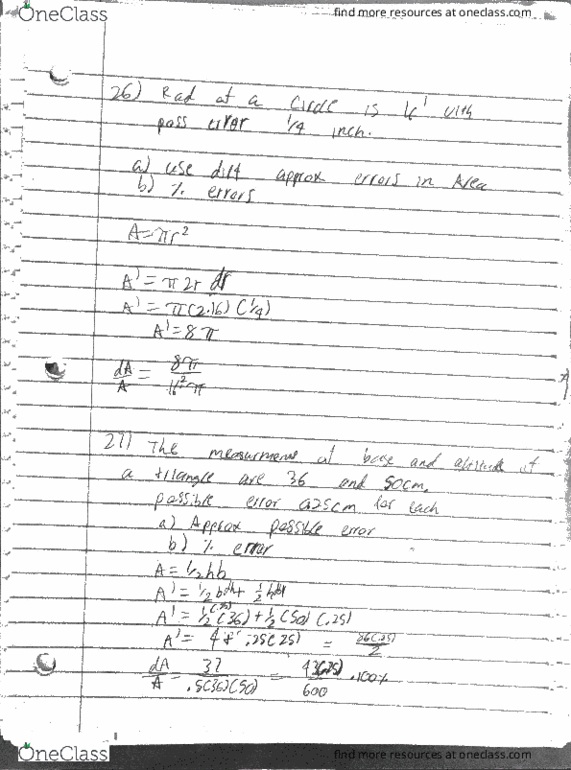 OneClass
find more resources at oneclass.com
26) Rad of a Circle is 16' with
poss error 1/4 inch.
a) use diff approx errors in Area
b) % errors
A=πr²
A' = π 2r dr
A' = π(2·16)(1/4)
A' = 8π
dA/A = 8π/16²π
27) The measurments of base and altitude of
a triangle are 36 and 50cm,
possible error 0.25cm for each
a) Approx possible error
b) % error
A = 1/2hb
A' =
A' = 1/2(36) + 1/2(50)(.25)
A' =
dA/A = .5(36)(50) = 600 .100%
OneClass
find more resources at oneclass.com